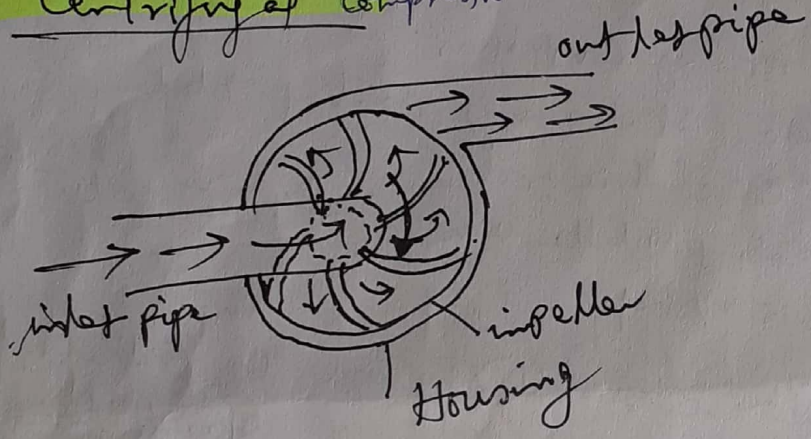 Centrifugal Comp
outlet pipe
inlet pipe
impeller
Housing